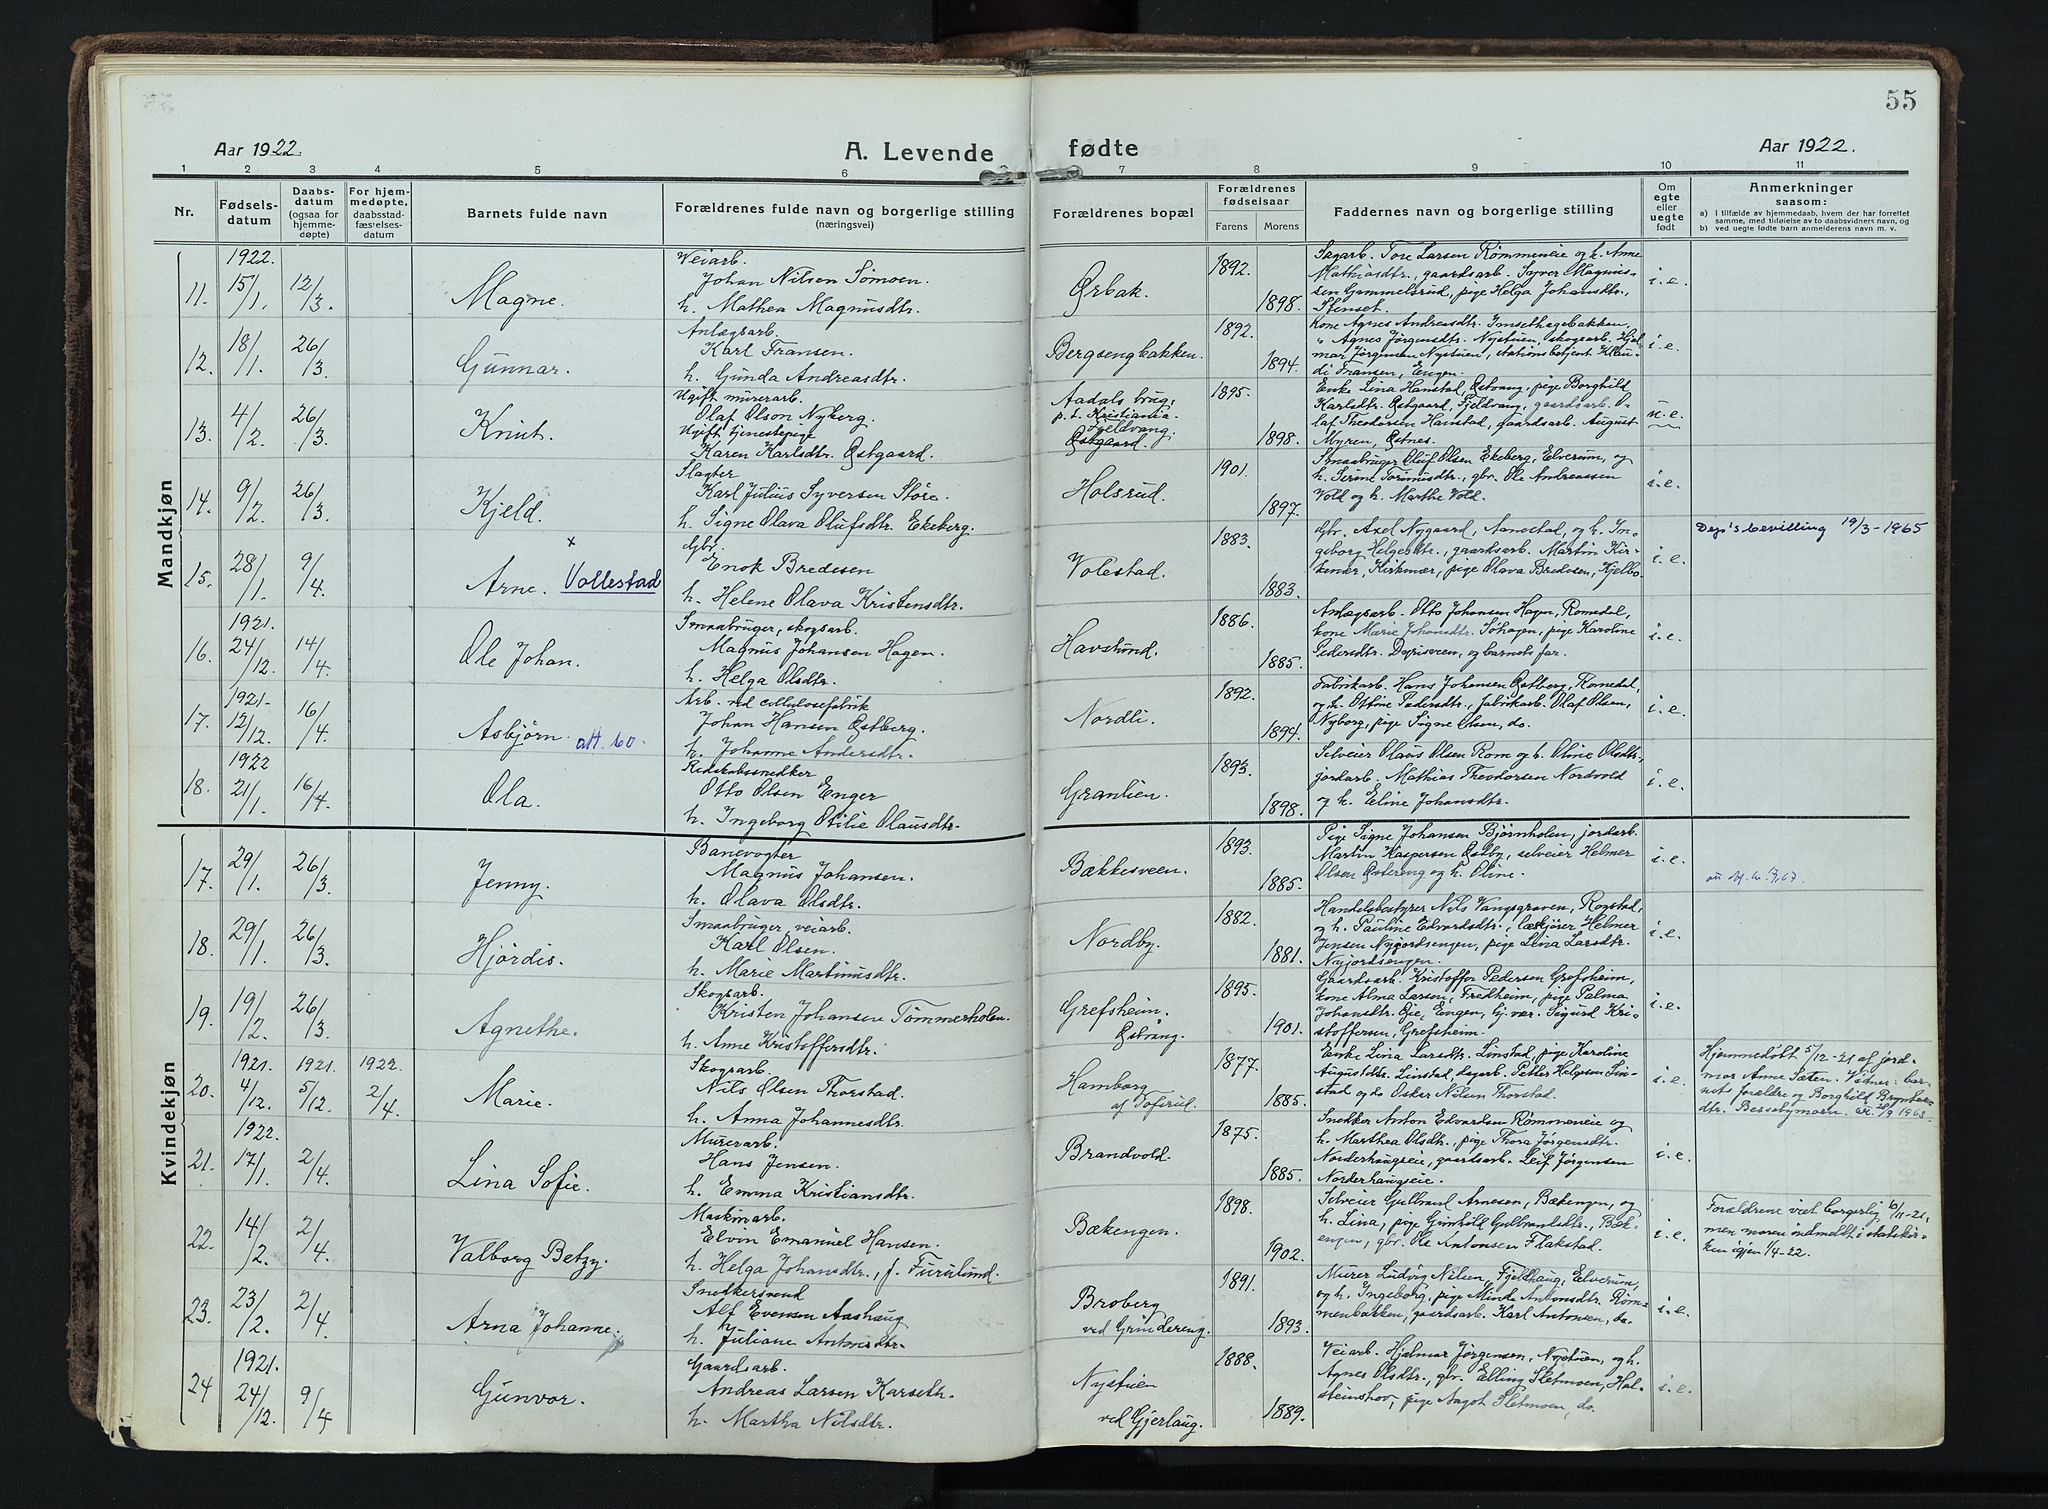 55
Aar 1922.
A. Levende
fødte
Aar 1922.
1 2 3 4 5 6 7 8 9 10 11
Nr.
Fødselsdatum
Daabsdatum (ogsaa for hjemmedøpte)
For hjemmedøpte, daabsstadfæstelsesdatum
Barnets fulde navn
Forældrenes fulde navn og borgerlige stilling (næringsvei)
Forældrenes bopæl
Forældrenes fødselsaar
Farens Morens
Faddernes navn og borgerlige stilling
Om egte eller uegte født
Anmerkninger saasom:
a) i tilfælde av hjemmedaab, hvem der har forrettet samme, med tilføielse av to daabsvidners navn, og
b) ved uegte fødte barn anmelderens navn m. v.
Mandkjøn
1922.
11. 15/1. 12/3. Magne.
Veiarb.
Johan Nilsen Sømoen
h. Mathea Magnusdtr.
Ørbak.
1892. 1898.
Sagarb. Tore Larsen Rømmeneie og h. Anne
Mathiasdtr., gaardsarb. Syver Magnus-
sen Gammelsrud, pige Helga Johansdtr.,
Stenset.
i.e.
12. 18/1. 26/3. Gunnar.
Anlægsarb.
Karl Fransen.
h. Gunda Andreasdtr.
Bergsengbakken.
1892. 1894.
Kone Agnes Andreasdtr. Imsethagebakken,
" Agnes Jørgensdtr. Nystuen, skogsarb. Hjal-
mar Jørgensen Nystuen, stationsbetjent Klau-
di Fransen, Engen.
i.e.
13. 4/2. 26/3. Knut.
Ugift murerarb.
Olaf Olson Nyberg.
Ugift tjenestepige
Karen Karlsdtr. Østgaard.
Aadals brug,
p.t. Kristiania.
Fjeldvang.
Østgaard.
1895. 1898.
Enke Lina Hanstad, Østvang, pige Borghild
Karlsdtr. Østgaard, Fjeldvang, gaardsarb. O-
laf Theodorsen Hanstad, gaardsarb. August
Myren, Østnes.
u.e.
14. 9/2. 26/3. Kjeld.
Slagter
Karl Julius Syversen Støre.
h. Signe Olava Olufsdtr. Ekeberg.
Holsrud.
1901. 1897.
Smaabruger Oluf Olsen Ekeberg, Elverum, og
h. Serine Tormundsdtr., gbr. Ole Andreassen
Vold og h. Marthe Vold.
i.e.
15. 28/1. 9/4. Arne. x Vollestad
Gbr.
Enok Bredesen
h. Helene Olava Kristensdtr.
Volestad.
1883. 1883.
Gbr. Axel Nygaard, Aanestad, og h. In-
geborg Helgesdtr., gaardsarb. Martin Kir-
kenær, Kirkenær, pige Olava Bredesen, Kjelbo-
i.e.
Dep's bevilling 19/3-1965
1921.
16. 24/12. 14/4. Ole Johan.
Smaabruger, skogsarb.
Magnus Johansen Hagen.
h. Helga Olsdtr.
Havslund.
1886. 1885.
Anlægsarb. Otto Johansen Hagen, Romedal,
kone Marie Johansdtr. Søhagen, pige Karoline
Pedersdtr. Dorisveen, og barnets far.
i.e.
1921.
17. 12/12. 16/4. Asbjørn. att. 60.
Arb. ved cellulosefabrik
Johan Hansen Østberg.
h. Johanne Andersdtr.
Nordli.
1892. 1894.
Fabrikarb. Hans Johansen Østberg, Romedal,
og h. Ottine Pedersdtr., fabrikarb. Olaf Olsen,
Nyborg, pige Signe Olsen, do.
i.e.
1922
18. 21/1. 16/4. Ola.
Redskabssnedker
Otto Olsen Enger
h. Ingeborg Otilie Olausdtr.
Granlien.
1893. 1898.
Selveier Olaus Olsen Rom og h. Oline Olsdtr.,
jordarb. Mathias Theodorsen Nordvold
og h. Eline Johansdtr.
i.e.
Kvindekjøn
17. 29/1. 26/3. Jenny.
Banevogter
Magnus Johansen.
h. Olava Olsdtr.
Bakkesveen.
1893. 1885.
Pige Signe Johansen Bjørnholen, jordarb.
Martin Kaspersen Østby, selveier Helmer
Olsen Østereng og h. Oline.
i.e.
18. 29/1. 26/3. Hjørdis.
Smaabruger, veiarb.
Karl Olsen.
h. Marie Martinusdtr.
Nordby.
1882. 1881.
Handelsbestyrer Nils Vangsgraven, Rogstad,
og h. Pauline Edvardsdtr., læskjører Helmer
Jensen Nyjordsengen, pige Lina Larsdtr.
Nyjordsengen.
i.e.
19. 19/2. 26/3. Agnethe.
Skogsarb.
Kristen Johansen Tømmerholen.
h. Anne Kristoffersdtr.
Grefsheim.
Østvang.
1895. 1901.
Gaardsarb. Kristoffer Pedersen Grefsheim,
kone Alma Larsen, Fredheim, pige Palma
Johansdtr. Bie, Engen, Gj.vær. Sigurd Kri-
stoffersen, Grefsheim.
i.e.
1921. 1921. 1922.
20. 4/12. 5/12. 2/4. Marie.
Skogsarb.
Nils Olsen Thorstad.
h. Anna Johannesdtr.
Hamborg
af Tofsrud.
1877. 1885.
Enke Lina Larsdtr. Linstad, pige Karoline
Augustdtr. Linstad, dagarb. Petter Helgesen Lin-
stad og do Oskar Nilsen Thorstad.
i.e.
Hjemmedøbt 5/12-21 af jord-
mor Anne Sæten. Vidner: bar-
nets forældre og Borghild Bryntes-
dtr. Bessebymoen. 1963
1922.
21. 17/1. 2/4. Lina Sofie.
Murerarb.
Hans Jensen.
h. Emma Kristiansdtr.
Brandvold.
1875. 1885.
Snekker Anton Edvardsen Rømmeneie og
h. Marthea Olsdtr., pige Thora Jørgensdtr.
Norderhaugseie, gaardsarb. Leif Jørgensen
Norderhaugseie.
i.e.
22. 14/2. 2/4. Valborg Betzy.
Maskinarb.
Elvin Emanuel Hansen.
h. Helga Johansdtr., f. Furulund.
Bækengen.
1898. 1902.
Selveier Gulbrand Arnesen, Bækengen, og
h. Lina, pige Gunhild Gulbrandsdtr., Bæk-
engen, gbr. Ole Antonsen Flakstad.
i.e.
Forældrene viet borgerlig 6/11-21,
men moren indmeldt i statskir-
ken igjen 1/4-22.
23. 23/2. 2/4. Arna Johanne.
Snekkersvend
Alf Evensen Aashaug
h. Juliane Antonsdtr.
Broberg
ved Grindereng.
1891. 1893.
Murer Ludvig Nilsen, Fjeldhaug, Elverum,
og h. Ingeborg, pige Minda Antonsdtr. Røm-
menbakken, gaardsarb. Karl Antonsen, do.
i.e.
1921.
24 24/12. 9/4. Gunvor.
Gaardsarb.
Andreas Larsen Karseth.
h. Martha Nilsdtr.
Nystuen
ved Gjerlaug.
1888. 1889.
Veiarb. Hjelmar Jørgensen, Nystuen, og h.
Agnes Olsdtr., gbr. Elling Sletmoen, Hol-
steinshov, pige Aagot Sletmoen, do.
i.e.